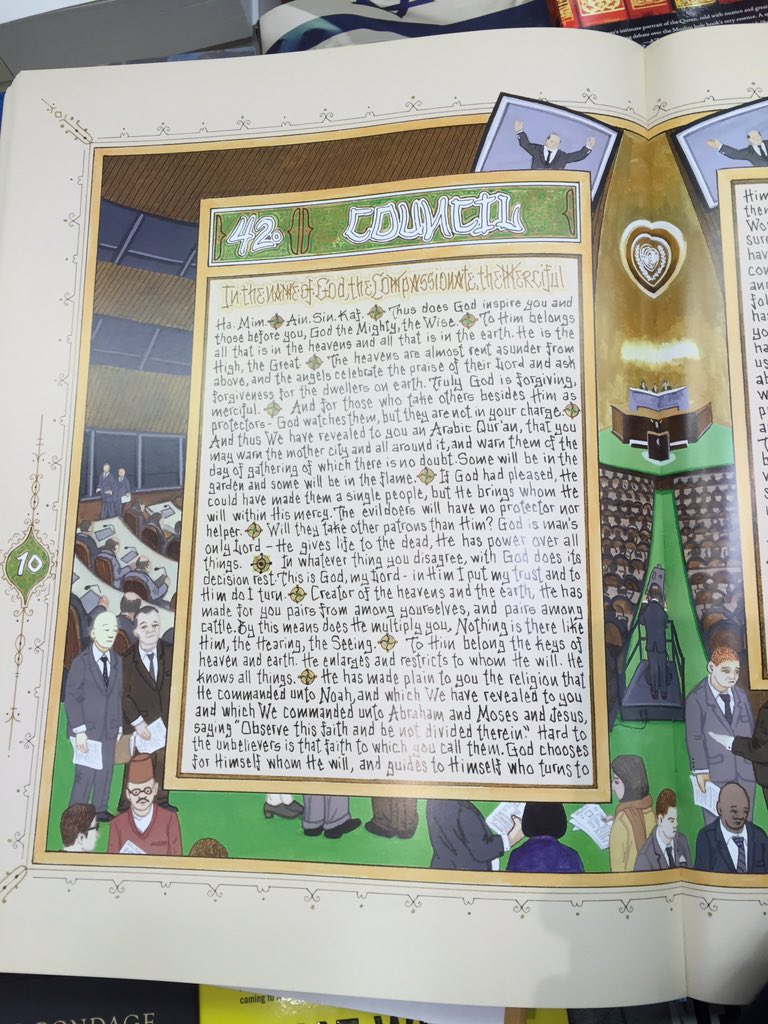 's intimate portrait of the Quran, told with nuance and great
debate over the Muslim holy book's very essence. A
42. COUNCIL
In the name of God, the Compassionate, the Merciful
Ha. Mim. Ain. Sin. Kaf. Thus does God inspire you and
those before you, God the Mighty, the Wise. To Him belongs
all that is in the heavens and all that is in the earth. He is the
High, the Great. The heavens are almost rent asunder from
above, and the angels celebrate the praise of their Lord and ask
forgiveness for the dwellers on earth. Truly God is forgiving,
merciful. And for those who take others besides Him as
protectors - God watches them, but they are not in your charge.
And thus We have revealed to you an Arabic Qur'an, that you
may warn the mother city and all around it, and warn them of the
day of gathering of which there is no doubt. Some will be in the
garden and some will be in the flame. If God had pleased, He
could have made them a single people, but He brings whom He
will within His mercy. The evildoers will have no protector nor
helper. Will they take other patrons than Him? God is man's
only Lord - He gives life to the dead, He has power over all
things. In whatever thing you disagree, with God does its
decision rest. This is God, my Lord - in Him I put my trust and to
Him do I turn. Creator of the heavens and the earth, He has
made for you pairs from among yourselves, and pairs among
cattle. By this means does He multiply you. Nothing is there like
Him, the Hearing, the Seeing. To Him belong the keys of
heaven and earth. He enlarges and restricts to whom He will. He
knows all things. He has made plain to you the religion that
He commanded unto Noah, and which We have revealed to you
and which We commanded unto Abraham and Moses and Jesus,
saying "Observe this faith and be not divided therein." Hard to
the unbelievers is that faith to which you call them. God chooses
for Himself whom He will, and guides to Himself who turns to
10
Him
then
Wo
sure
hav
co
and
fol
has
yo
ha
us
ab
w
pa
a
coming to
BONDAGE